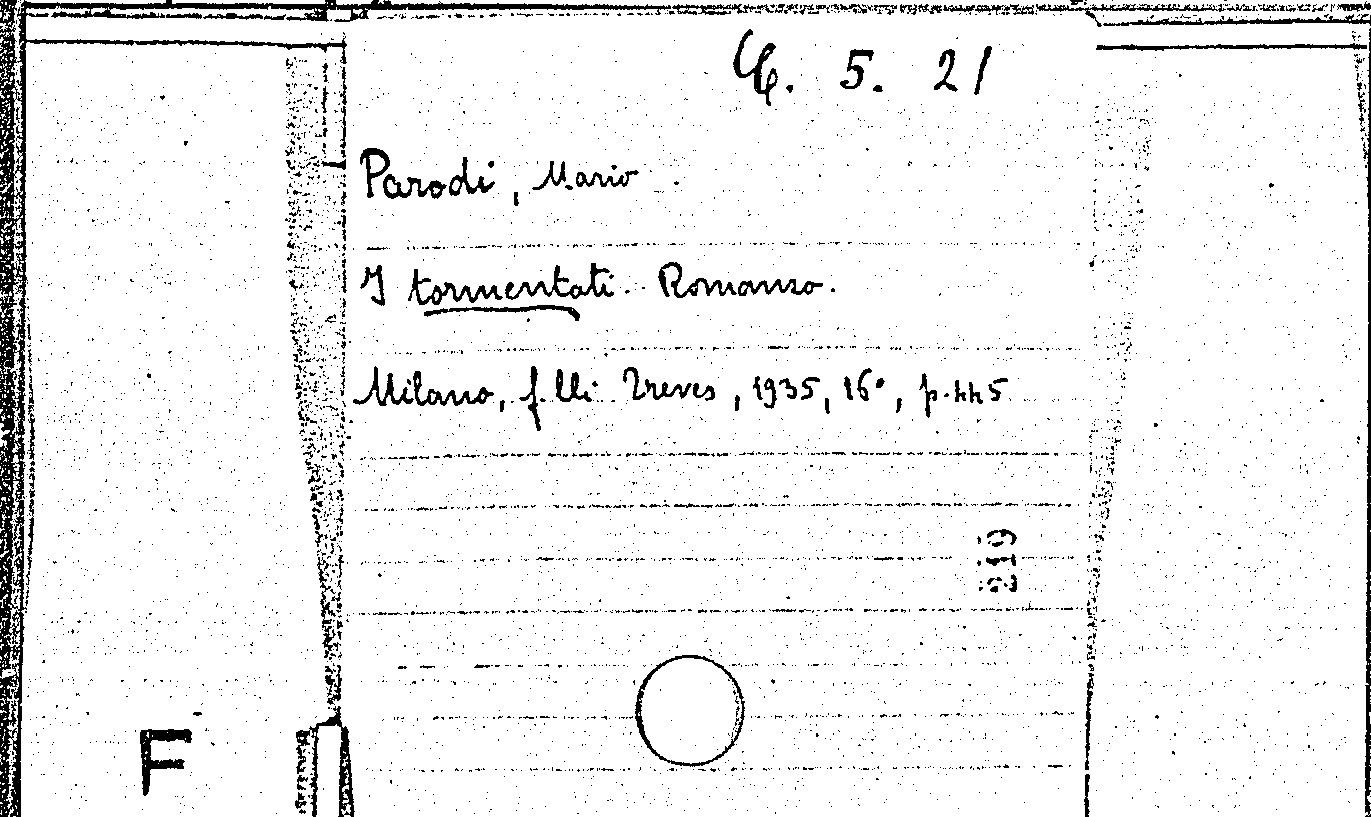 5. 21
Parodi, Mario.
I tormentati. Romanzo.
Milano, f.lli Treves, 1935, 16°, p. 445
219
F